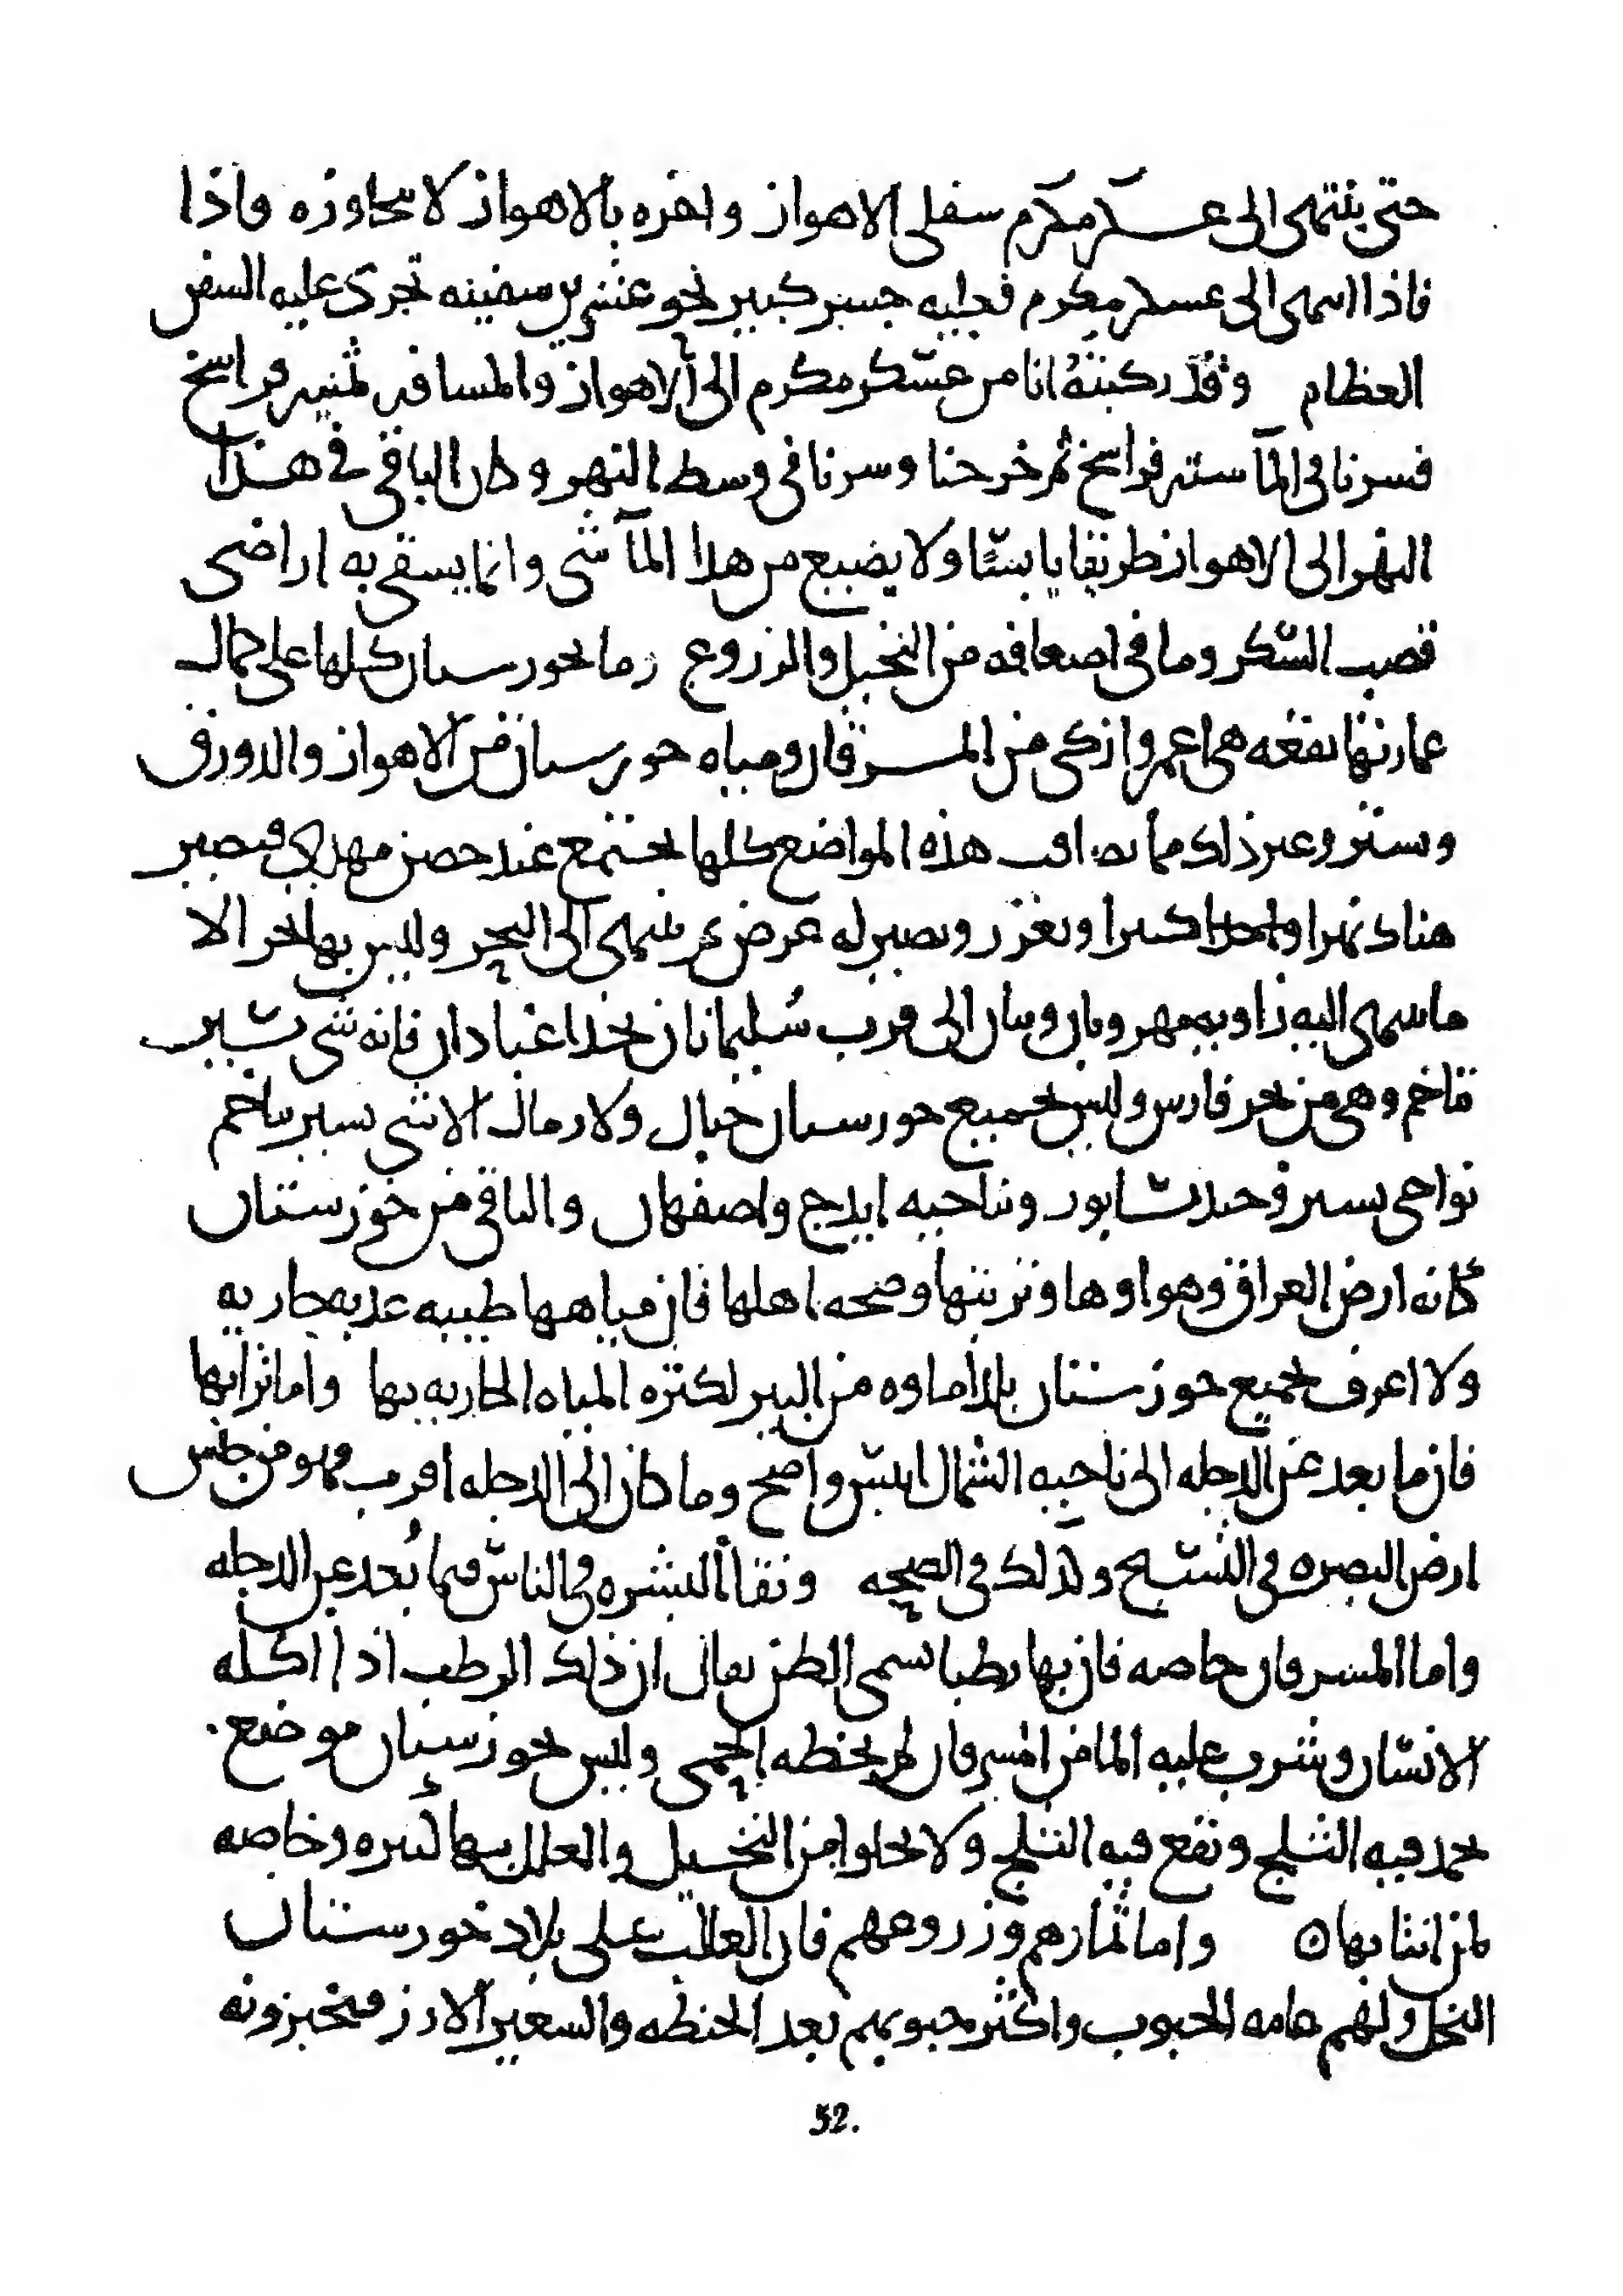 حتى ينتهى الى عسكر مكرم سفلى الاهواز واخره بالاهواز لا يتجاوزه واذا
فاذا انتهى الى عسكر مكرم فعليه جسر كبير نحو عشرين سفينه تجرى عليه السفن
العظام وقد ركبته انا من عسكر مكرم الى الاهواز والمسافه ثمنيه فراسخ
فسرنا فى المآ سته فراسخ ثم خرجنا وسرنا فى وسط النهر وكان الباقى فى هذا
النهر الى الاهواز طريقا يابسًا ولا يضيع من هذا المآ شى وانما يسقى به اراضى
قصب السكر وما فى اضعافه من النخيل والزروع وما بخورستان كلها على كمال
عمارتها بقعه هى اعمر وازكى من المسرقان ومياه خورستان من الاهواز والدورق
وتستر وغير ذلك مما يصاقب هذه المواضع كلها يجتمع عند حصن مهدى فيصير
هناك نهرا واحدا كبيرا ويغزر ويصير له عرض ثم ينتهى الى البحر وليس بها بحر الا
ما ينتهى اليه زاويه مهروبان وينان الى قرب سليمانان بحذا عبادان فانه شى يسير
تاخم وهى من بحر فارس وليس بجميع خورستان جبال ولا رمال الا شى يسير يتاخم
نواحى تستر وجندشابور وناحيه ايدج واصفهان والباقى من خوزستان
كانه ارض العراق وهواوها وتربتها وصحه اهلها فان مياهها طيبه عذبه جاريه
ولا اعرف بجميع خوزستان بلدا ماوه من البير لكثره المياه الجاريه بها واما ترابها
فان ما بعد عن الدجله الى ناحيه الشمال ايبس واصح وما كان الى الدجله اقرب فهو من جنس
ارض البصره فى التسبخ وكذلك فى الصحه ونقا البشره فى الناس فيما بُعد عن الدجله
واما المسرقان خاصه فان بها رطبا يسمى الطن يقال ان ذلك الرطب اذا اكله
الانسان وشرب عليه الما من المسرقان لم يخطه الحمى وليس بخوزستان موضع
يجمد فيه الثلج ويقع فيه الثلج ولا يخلوا من النخيل والعلل بها كثيره وخاصه
لمن انتابها ه واما ثمارهم وزروعهم فان الغالب على بلاد خورستان
النخل ولهم عامه الحبوب واكثر حبوبهم بعد الحنطه والشعير الارز فيخبزونه
52.